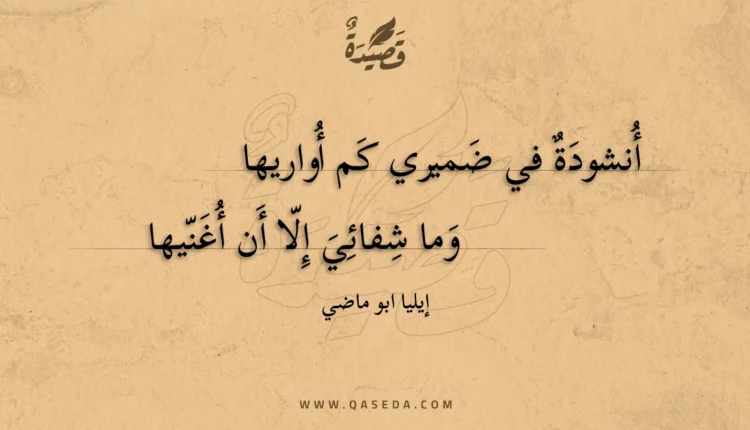 قَصِيْدَةٌ
أُنشودَةٌ في ضَميري كَم أُواريها
وَما شِفائِيَ إِلّا أَن أُغَنّيها
إيليا ابو ماضي
WWW.QASEDA.COM